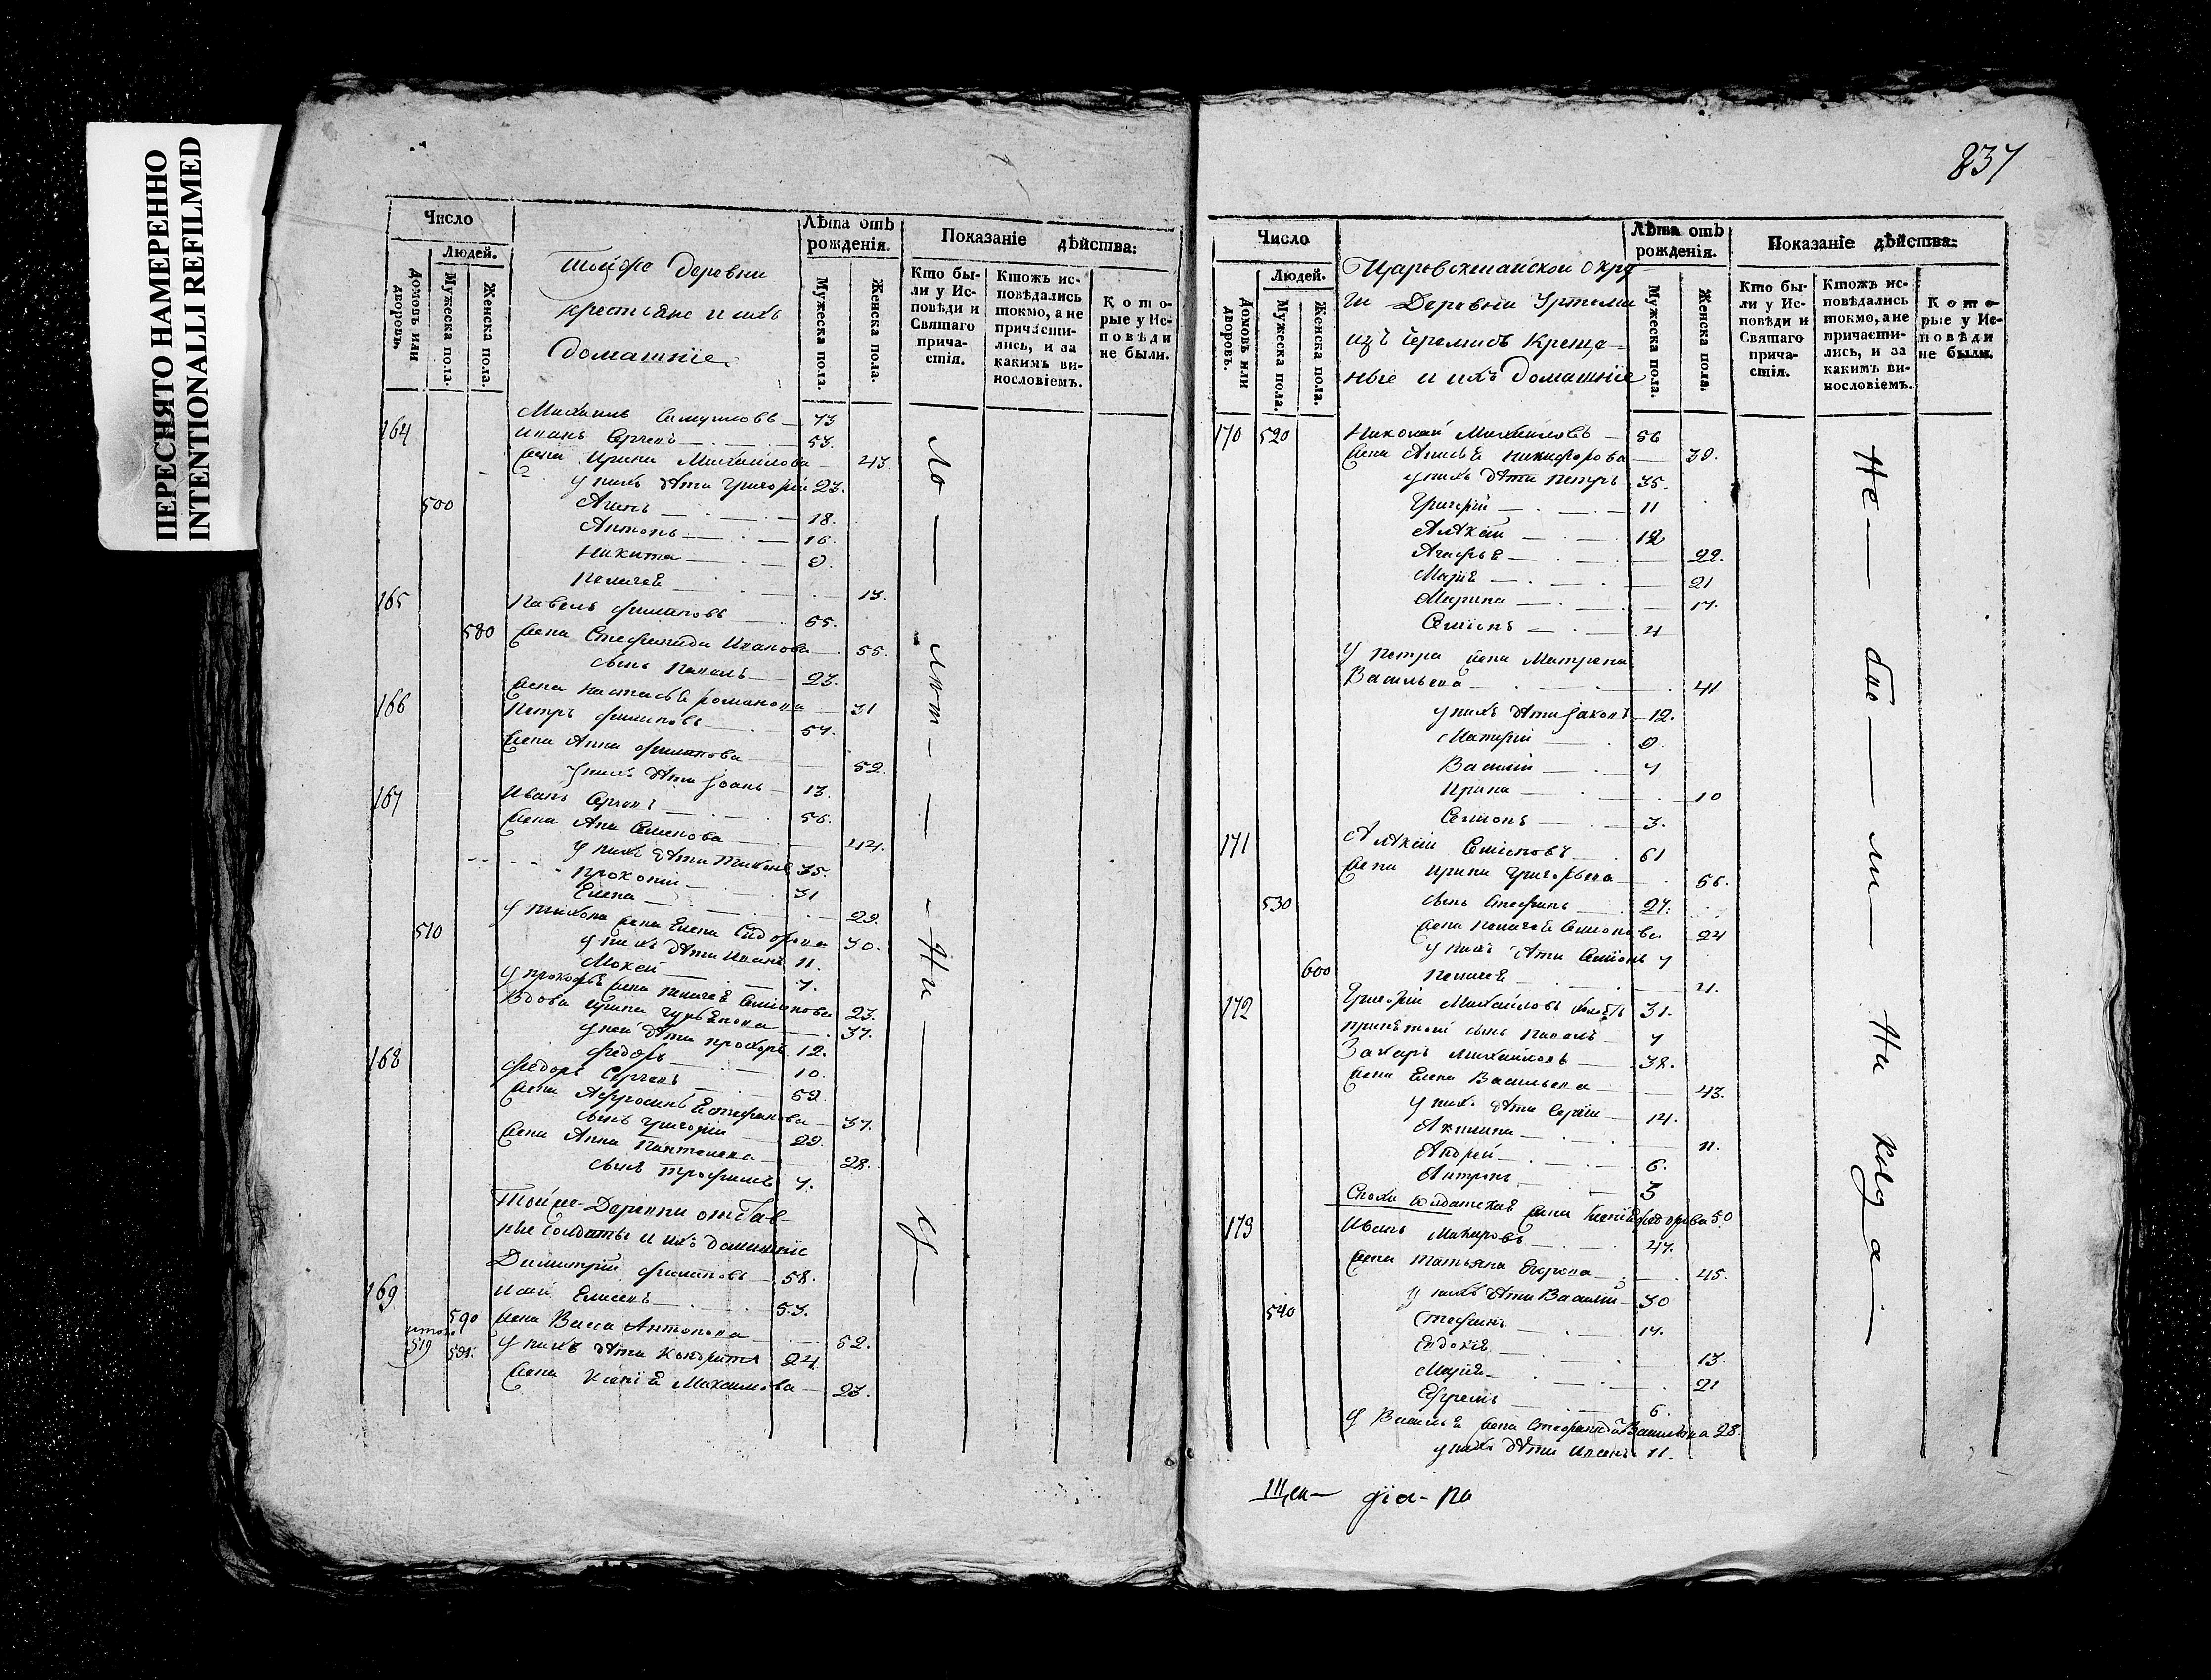 ПЕРЕСНЯТО НАМЕРЕННО
INTENTIONALLI REFILMED
Число
Людей.
Домовъ или дворовъ.
Мужеска пола.
Женска пола.
Тойже деревни
крестьяне и ихъ
домашніе
Лѣта отъ рожденія.
Мужеска пола.
Женска пола.
Показаніе дѣйства:
Кто были у Исповѣди и Святаго причастія.
Ктожъ исповѣдались токмо, а не причастились, и за какимъ винословіемъ.
Которые у Исповѣди не были.
Михаилъ Самуиловъ 73
164 Иванъ Сергѣевъ 53.
Жена Ирина Михайлова 43.
у нихъ дѣти Григорій 23.
500 18.
Антонъ 16.
Никита 9.
Пелагея 13.
165 Павелъ Филиповъ 55.
580 Жена Стефанида Иванова 55.
сынъ Павелъ 23.
Жена Настасья Романова 31
166 Петръ Филиповъ 57.
Жена Анна Филипова 52.
у нихъ дѣти Іоанъ 13.
167 Иванъ 56.
Жена Ана Семенова 44.
у нихъ дѣти Тихонъ 35.
Прокопій 31
Елена 22.
у Тихона жена Елена Сидорова 30.
510 у нихъ дѣти Иванъ 11.
Мокей 7.
у Прокофья жена Пелагея Семіонова 23.
Вдова Ирина 37.
у ней дѣти Прохоръ 12.
Федоръ 10.
168 Федоръ Сергѣевъ 52.
Жена Афросинья Стефанова 37.
сынъ Григорій 29.
Жена Анна 28.
сынъ Трофимъ 7.
Тойже Деревни отстав-
ные солдаты и ихъ домашніе
Димитрій Филиповъ 58.
169 Елисеевъ 53.
590 Жена Васса Антонова 52.
итого 519 591. у нихъ дѣти Кондратій 24
Жена Ксенія Михаилова 23.
837
Число
Людей.
Домовъ или дворовъ.
Мужеска пола.
Женска пола.
Царевокшайской окру
ги Деревни Уртемы
изъ черемисъ Креще-
ные и ихъ домашніе
Лѣта отъ рожденія.
Мужеска пола.
Женска пола.
Показаніе дѣйства:
Кто были у Исповѣди и Святаго причастія.
Ктожъ исповѣдались токмо, а не причастились, и за какимъ винословіемъ.
Которые у Исповѣди не были.
170 520 Николай Михайловъ 56
Жена Анисья Никифорова 39.
у нихъ дѣти Петръ 35.
Григорій 11
Алѣкѣй 12
Агафья 22.
Марія 21
Марина 17.
Семіонъ 4
у Петра жена Матрена
Васильева 41
у нихъ дѣти Іаковъ 12.
9
Василій 7
Ирина 10
Семіонъ 3.
171 Алѣкѣй Семіоновъ 61
Жена Ирина Григорьева 56.
530 сынъ Стефанъ 27.
Жена Пелагея Семіонова 24
у нихъ дѣти Семіонъ 7
600 Пелагея 4.
172 Григорій Михайловъ 31.
принятой сынъ Павелъ 7
Захаръ Михайловъ 38.
Жена Елена Васильева 43.
у нихъ дѣти Сергій 14.
Акилина 11.
Андрей 6.
Антропъ 3
Сноха солдатская жена Ксенія Федорова 50
173 Иванъ Макаровъ 47.
Жена Татьяна Егорова 45.
у нихъ дѣти Василій 30
540 Стефанъ 14.
Евдокія 13.
Марія 21
Ефремъ 6.
у Василья жена Стефанида Васильева 28.
у нихъ дѣти Иванъ 11.
Не — бы — ли — Ни когда —
діа-ко